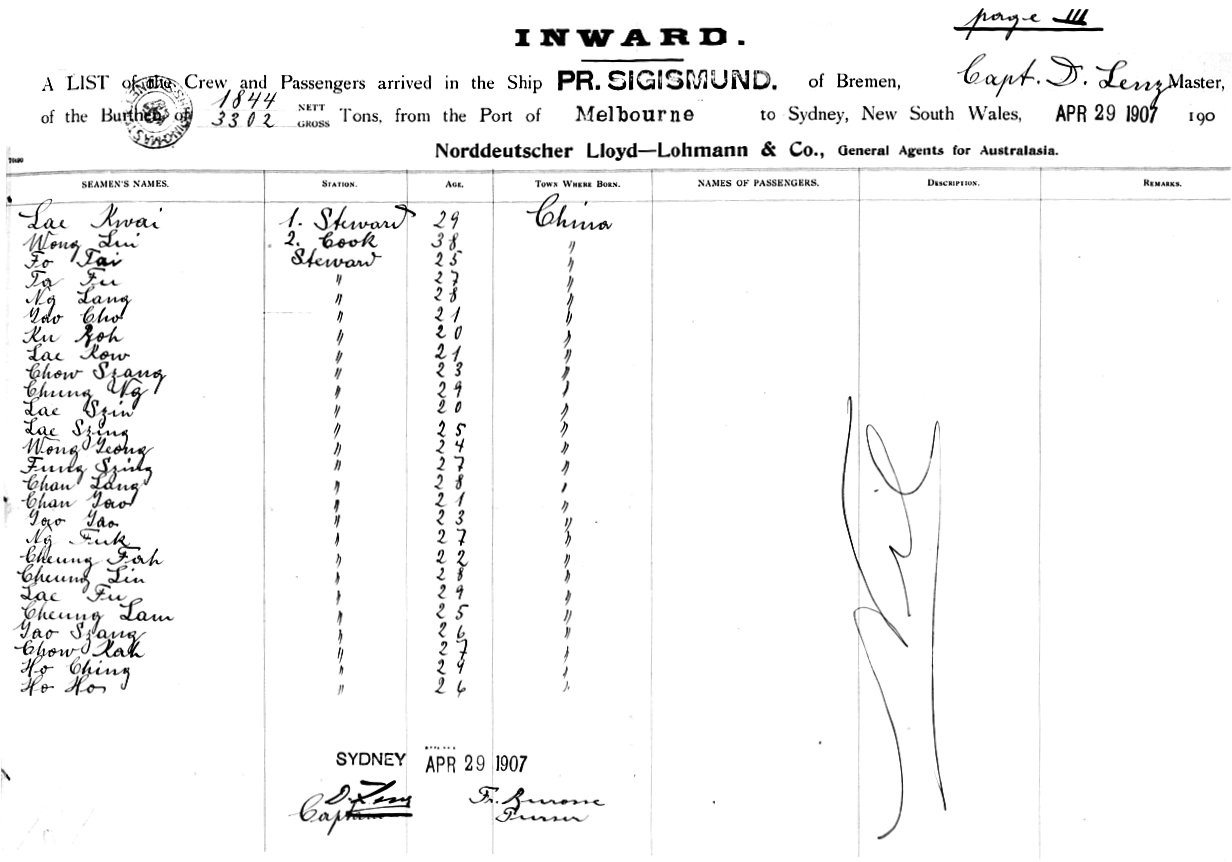 page III
INWARD.
A LIST of the Crew and Passengers arrived in the Ship PR. SIGISMUND. of Bremen, Capt. D. Lenz Master,
of the Burthen of 1844 NETT
3302 GROSS Tons, from the Port of Melbourne to Sydney, New South Wales, APR 29 1907 190
Norddeutscher Lloyd—Lohmann & Co., General Agents for Australasia.
SEAMEN'S NAMES. STATION. AGE. TOWN WHERE BORN. NAMES OF PASSENGERS. DESCRIPTION. REMARKS.
Lae Kwai 1. Steward 29 China
Wong Lui 2. Cook 38 "
Fo Tai Steward 25 "
Ta Fu " 27 "
Ng Lang " 28 "
Yao Cho " 21 "
Ku Zoh " 20 "
Lae Kow " 21 "
Chow Szang " 23 "
Chung Ng " 29 "
Lae Szin " 20 "
Lae Szing " 25 "
Wong Yeong " 24 "
Fung Szing " 27 "
Chan Lang " 28 "
Chan Yao " 21 "
Yao Yao " 23 "
Ng Fuk " 27 "
Cheung Fah " 22 "
Cheung Lin " 28 "
Lae Fu " 29 "
Cheung Lam " 25 "
Yao Szang " 26 "
Chow Kah " 27 "
Ho Ching " 29 "
Ho Ho " 26 "
Nil
SYDNEY APR 29 1907
D. Lenz
Captain
Purser